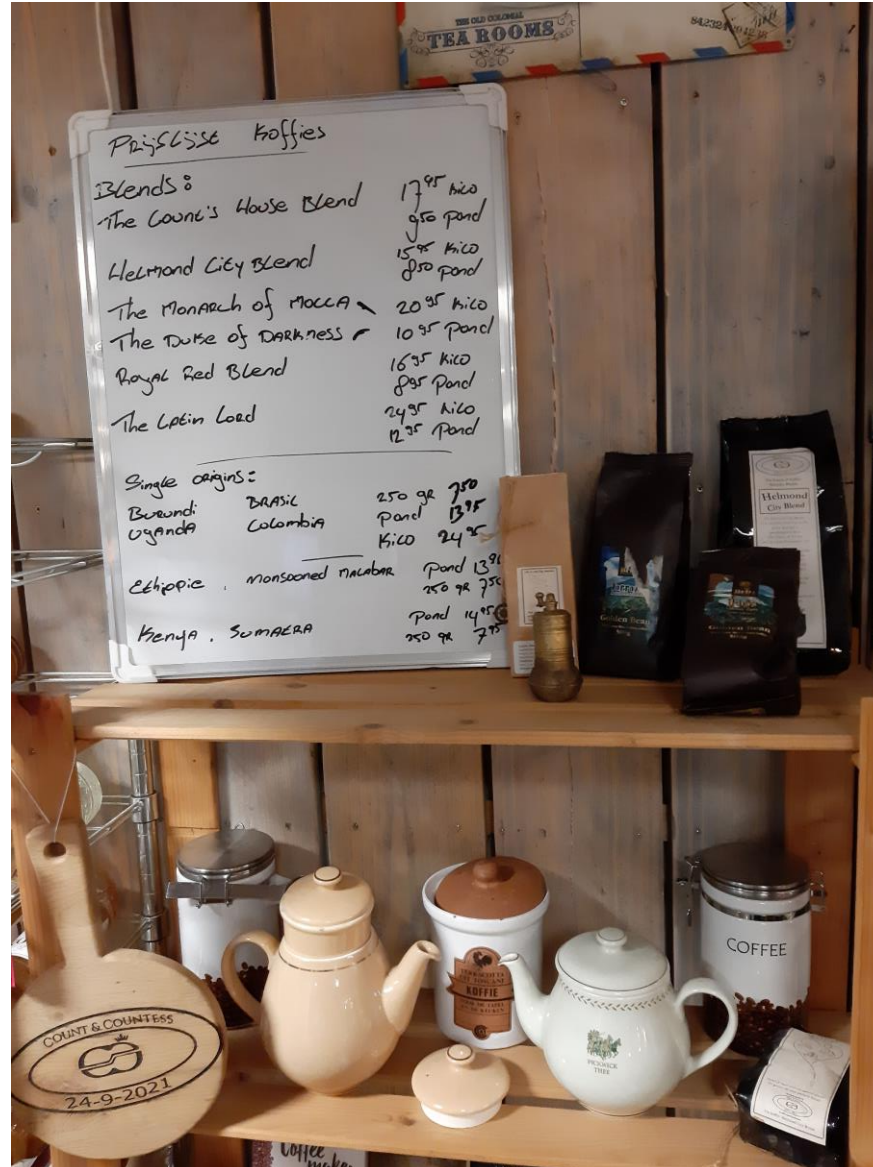 THE OLD COLONIAL
TEA ROOMS
Prijslijst Koffies
Blends:
The Count's House Blend 17 95 Kilo
9 50 Pond
Helmond City Blend 15 95 Kilo
8 50 Pond
The Monarch of Mocca 20 95 Kilo
The Duke of Darkness 10 95 Pond
Royal Red Blend 16 95 Kilo
8 95 Pond
The Latin Lord 24 95 Kilo
12 95 Pond
Single origins:
Burundi BRASIL 250 gr 7 50
Uganda Colombia Pond 13 95
Kilo 24 95
Ethiopie. Monsooned Malabar Pond 13 95
250 gr 7 50
Kenya. Sumatra Pond 14 95
250 gr 7 95
Helmond
City Blend
Golden Bean
COFFEE
KOFFIE
PICKWICK
THEE
COUNT & COUNTESS
24-9-2021
Coffee